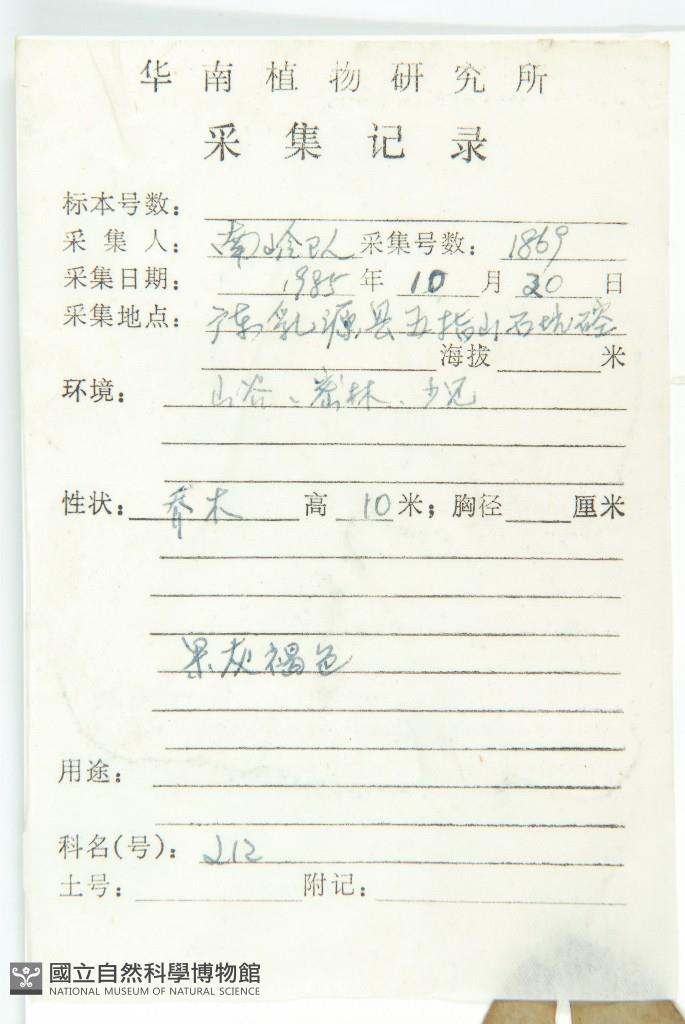 华南植物研究所
采集记录
标本号数：
采集人：南岭队 采集号数：1869
采集日期：1985年10月20日
采集地点：广东乳源县五指山石坑崆
海拔 米
环境：山谷、密林、少见
性状：乔木 高10米；胸径 厘米
果灰褐色
用途：
科名(号)：212
土号： 附记：
國立自然科學博物館
NATIONAL MUSEUM OF NATURAL SCIENCE